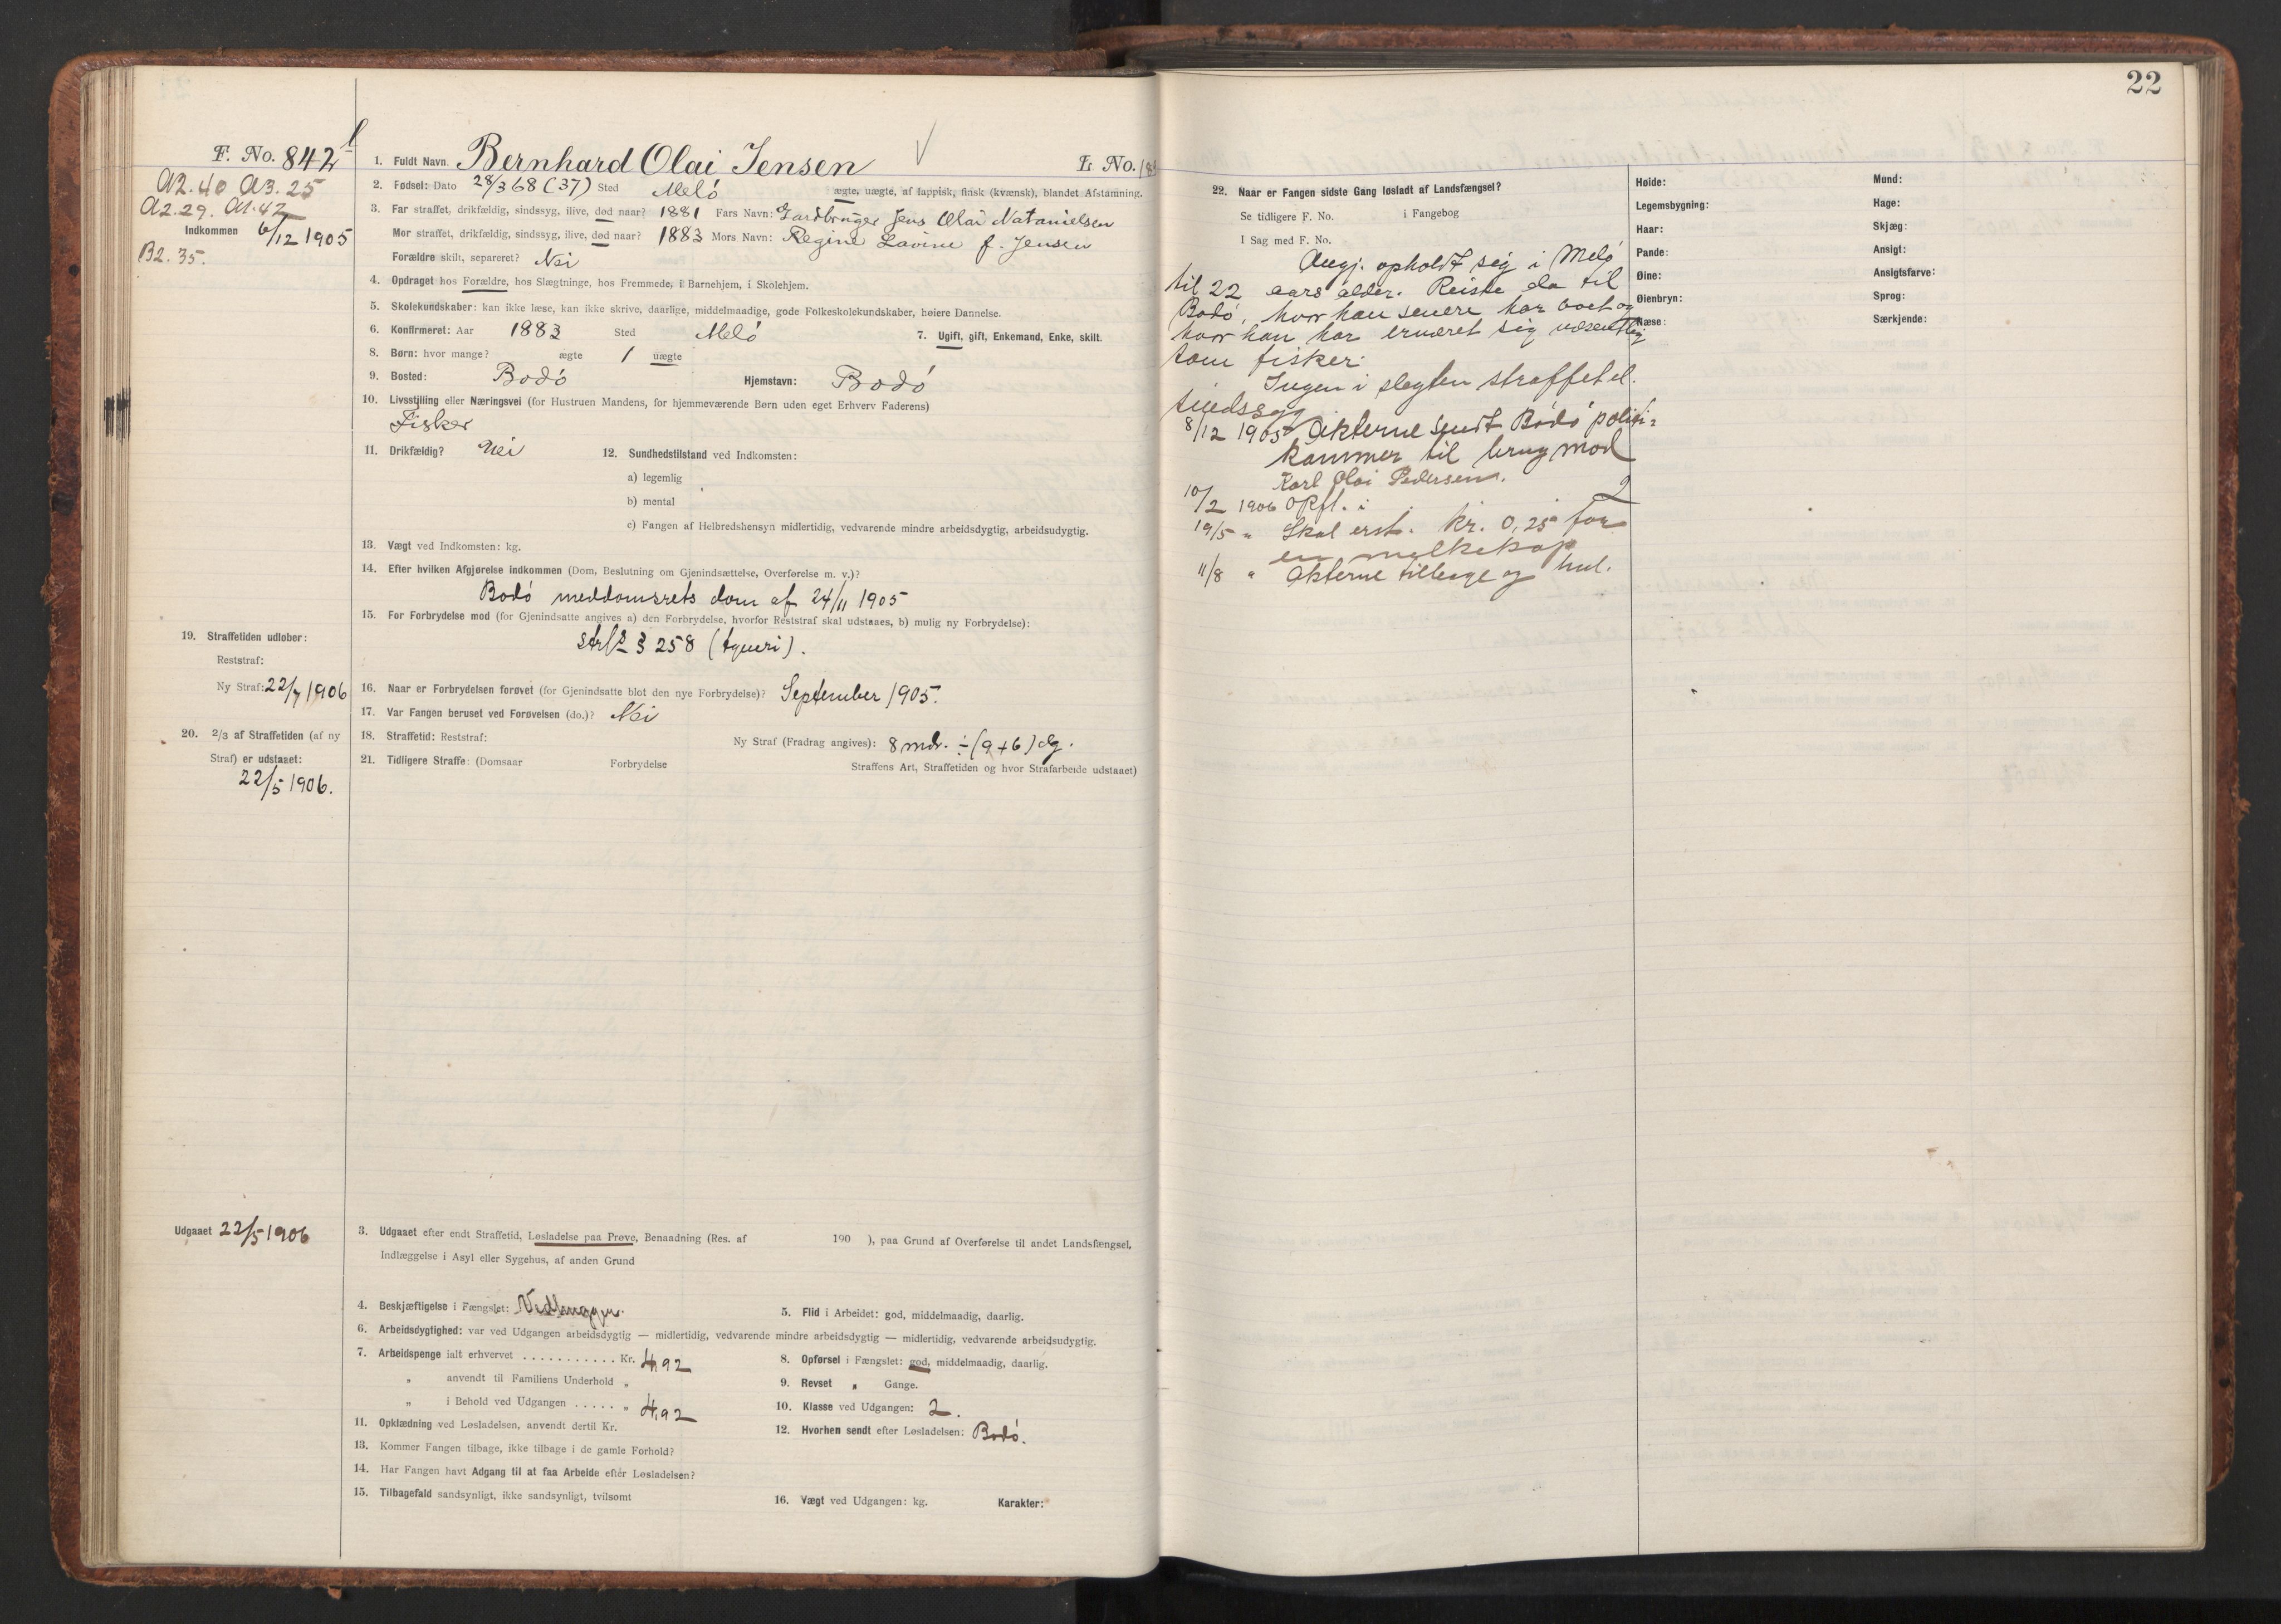 22
F. No. 842
A2.40 A3.25
A2.29. A1.42
Indkommen 6/12 1905
B2.35.
1. Fuldt Navn Bernhard Olai Jensen L No.
2. Fødsel: Dato 28/3 68 (37) Sted Melö ægte, uægte, af lappisk, finsk (kvænsk), blandet Afstamning.
3. Far straffet, drikfældig, sindssyg, ilive, død naar? 1881 Fars Navn: Gaardbruger Jens Olai Natanielsen
Mor straffet, drikfældig, sindssyg, ilive, død naar? 1883 Mors Navn: Regine Lavine f. Jensen
Forældre skilt, separeret? Nei
4. Opdraget hos Forældre, hos Slægtninge, hos Fremmede, i Barnehjem, i Skolehjem.
5. Skolekundskaber: kan ikke læse, kan ikke skrive, daarlige, middelmaadige, gode Folkeskolekundskaber, høiere Dannelse.
6. Konfirmeret: Aar 1883 Sted Melö 7. Ugift, gift, Enkemand, Enke, skilt.
8. Børn: hvor mange? ægte 1 uægte
9. Bosted: Bodö Hjemstavn: Bodö
10. Livsstilling eller Næringsvei (for Hustruen Mandens, for hjemmeværende Børn uden eget Erhverv Faderens)
Fisker
11. Drikfældig? Nei 12. Sundhedstilstand ved Indkomsten:
a) legemlig
b) mental
c) Fangen af Helbredshensyn midlertidig, vedvarende mindre arbeidsdygtig, arbeidsudygtig.
13. Vægt ved Indkomsten: kg.
14. Efter hvilken Afgjørelse indkommen (Dom, Beslutning om Gjenindsættelse, Overførelse m. v.)?
Bodö meddomsrets dom af 24/11 1905
15. For Forbrydelse mod (for Gjenindsatte angives a) den Forbrydelse, hvorfor Reststraf skal udstaaes, b) mulig ny Forbrydelse):
§ 258 (tyveri).
19. Straffetiden udløber:
Reststraf:
Ny Straf: 22/7 1906
16. Naar er Forbrydelsen forøvet (for Gjenindsatte blot den nye Forbrydelse)? September 1905.
17. Var Fangen beruset ved Forøvelsen (do.)? Nei
18. Straffetid: Reststraf: Ny Straf (Fradrag angives): 8 mdr. ÷ (9+6) dg.
20. 2/3 af Straffetiden (af ny
Straf) er udstaaet:
22/5 1906.
21. Tidligere Straffe: (Domsaar Forbrydelse Straffens Art, Straffetiden og hvor Strafarbeide udstaaet)
Udgaaet 22/5 1906
3. Udgaaet efter endt Straffetid, Løsladelse paa Prøve, Benaadning (Res. af 190 ), paa Grund af Overførelse til andet Landsfængsel,
Indlæggelse i Asyl eller Sygehus, af anden Grund
4. Beskjæftigelse i Fængslet: Vedhugger. 5. Flid i Arbeidet: god, middelmaadig, daarlig.
6. Arbeidsdygtighed: var ved Udgangen arbeidsdygtig — midlertidig, vedvarende mindre arbeidsdygtig — midlertidig, vedvarende arbeidsudygtig.
7. Arbeidspenge ialt erhvervet . . . . . . . . . . . Kr. 4,92 8. Opførsel i Fængslet: god, middelmaadig, daarlig.
" anvendt til Familiens Underhold " 9. Revset " Gange.
" i Behold ved Udgangen . . . . . " 4,92 10. Klasse ved Udgangen: 2.
11. Opklædning ved Løsladelsen, anvendt dertil Kr. 12. Hvorhen sendt efter Løsladelsen: Bodö.
13. Kommer Fangen tilbage, ikke tilbage i de gamle Forhold?
14. Har Fangen havt Adgang til at faa Arbeide efter Løsladelsen?
15. Tilbagefald sandsynligt, ikke sandsynligt, tvilsomt
16. Vægt ved Udgangen: kg. Karakter:
22. Naar er Fangen sidste Gang løsladt af Landsfængsel?
Se tidligere F. No. i Fangebog
I Sag med F. No.
Angj. opholdt sig i Melö
til 22 aars alder. Reiste da til
Bodö, hvor han senere har boet og
hvor han har ernæret sig væsentlig
som fisker.
Ingen i slegten straffet el.
sindssyg
8/12 1905 Akterne sendt Bodö politi-
kammer til brug mod
Karl Olai Pedersen.
10/2 1906 Opfl. i 2
19/5 " Skal erst. kr. 0,25 for
en melkekop
11/8 " Akterne tilbage og
Høide: Mund:
Legemsbygning: Hage:
Haar: Skjæg:
Pande: Ansigt:
Øine: Ansigtsfarve:
Øienbryn: Sprog:
Næse: Særkjende: